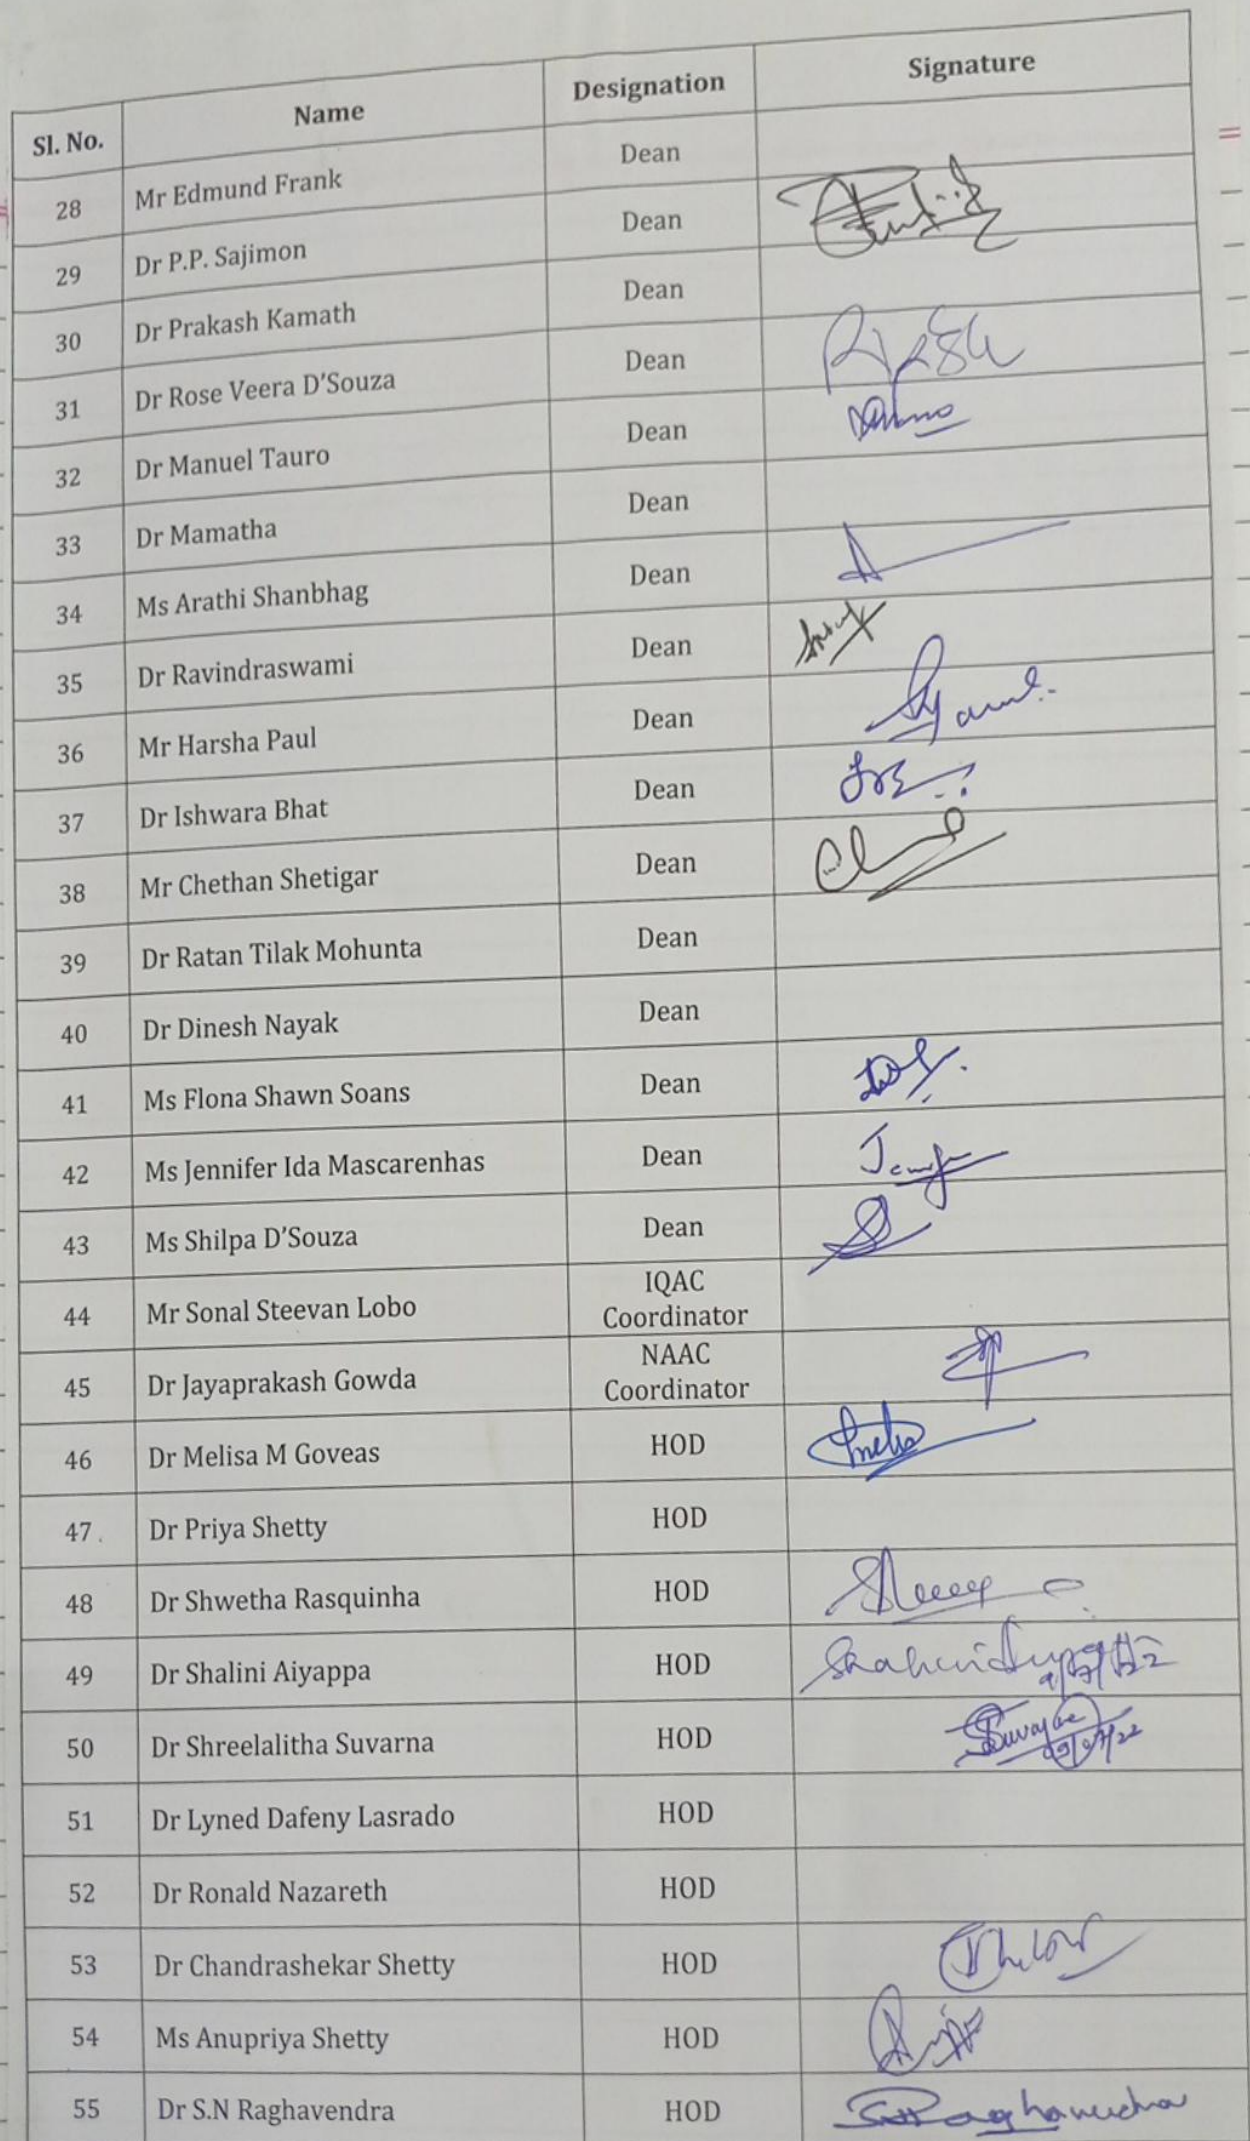 Sl. No. Name Designation Signature
28 Mr Edmund Frank Dean
29 Dr P.P. Sajimon Dean
30 Dr Prakash Kamath Dean
31 Dr Rose Veera D'Souza Dean
32 Dr Manuel Tauro Dean
33 Dr Mamatha Dean
34 Ms Arathi Shanbhag Dean
35 Dr Ravindraswami Dean
36 Mr Harsha Paul Dean
37 Dr Ishwara Bhat Dean
38 Mr Chethan Shetigar Dean
39 Dr Ratan Tilak Mohunta Dean
40 Dr Dinesh Nayak Dean
41 Ms Flona Shawn Soans Dean
42 Ms Jennifer Ida Mascarenhas Dean
43 Ms Shilpa D'Souza Dean
44 Mr Sonal Steevan Lobo IQAC
Coordinator
45 Dr Jayaprakash Gowda NAAC
Coordinator
46 Dr Melisa M Goveas HOD
47 Dr Priya Shetty HOD
48 Dr Shwetha Rasquinha HOD
49 Dr Shalini Aiyappa HOD
50 Dr Shreelalitha Suvarna HOD
51 Dr Lyned Dafeny Lasrado HOD
52 Dr Ronald Nazareth HOD
53 Dr Chandrashekar Shetty HOD
54 Ms Anupriya Shetty HOD
55 Dr S.N Raghavendra HOD